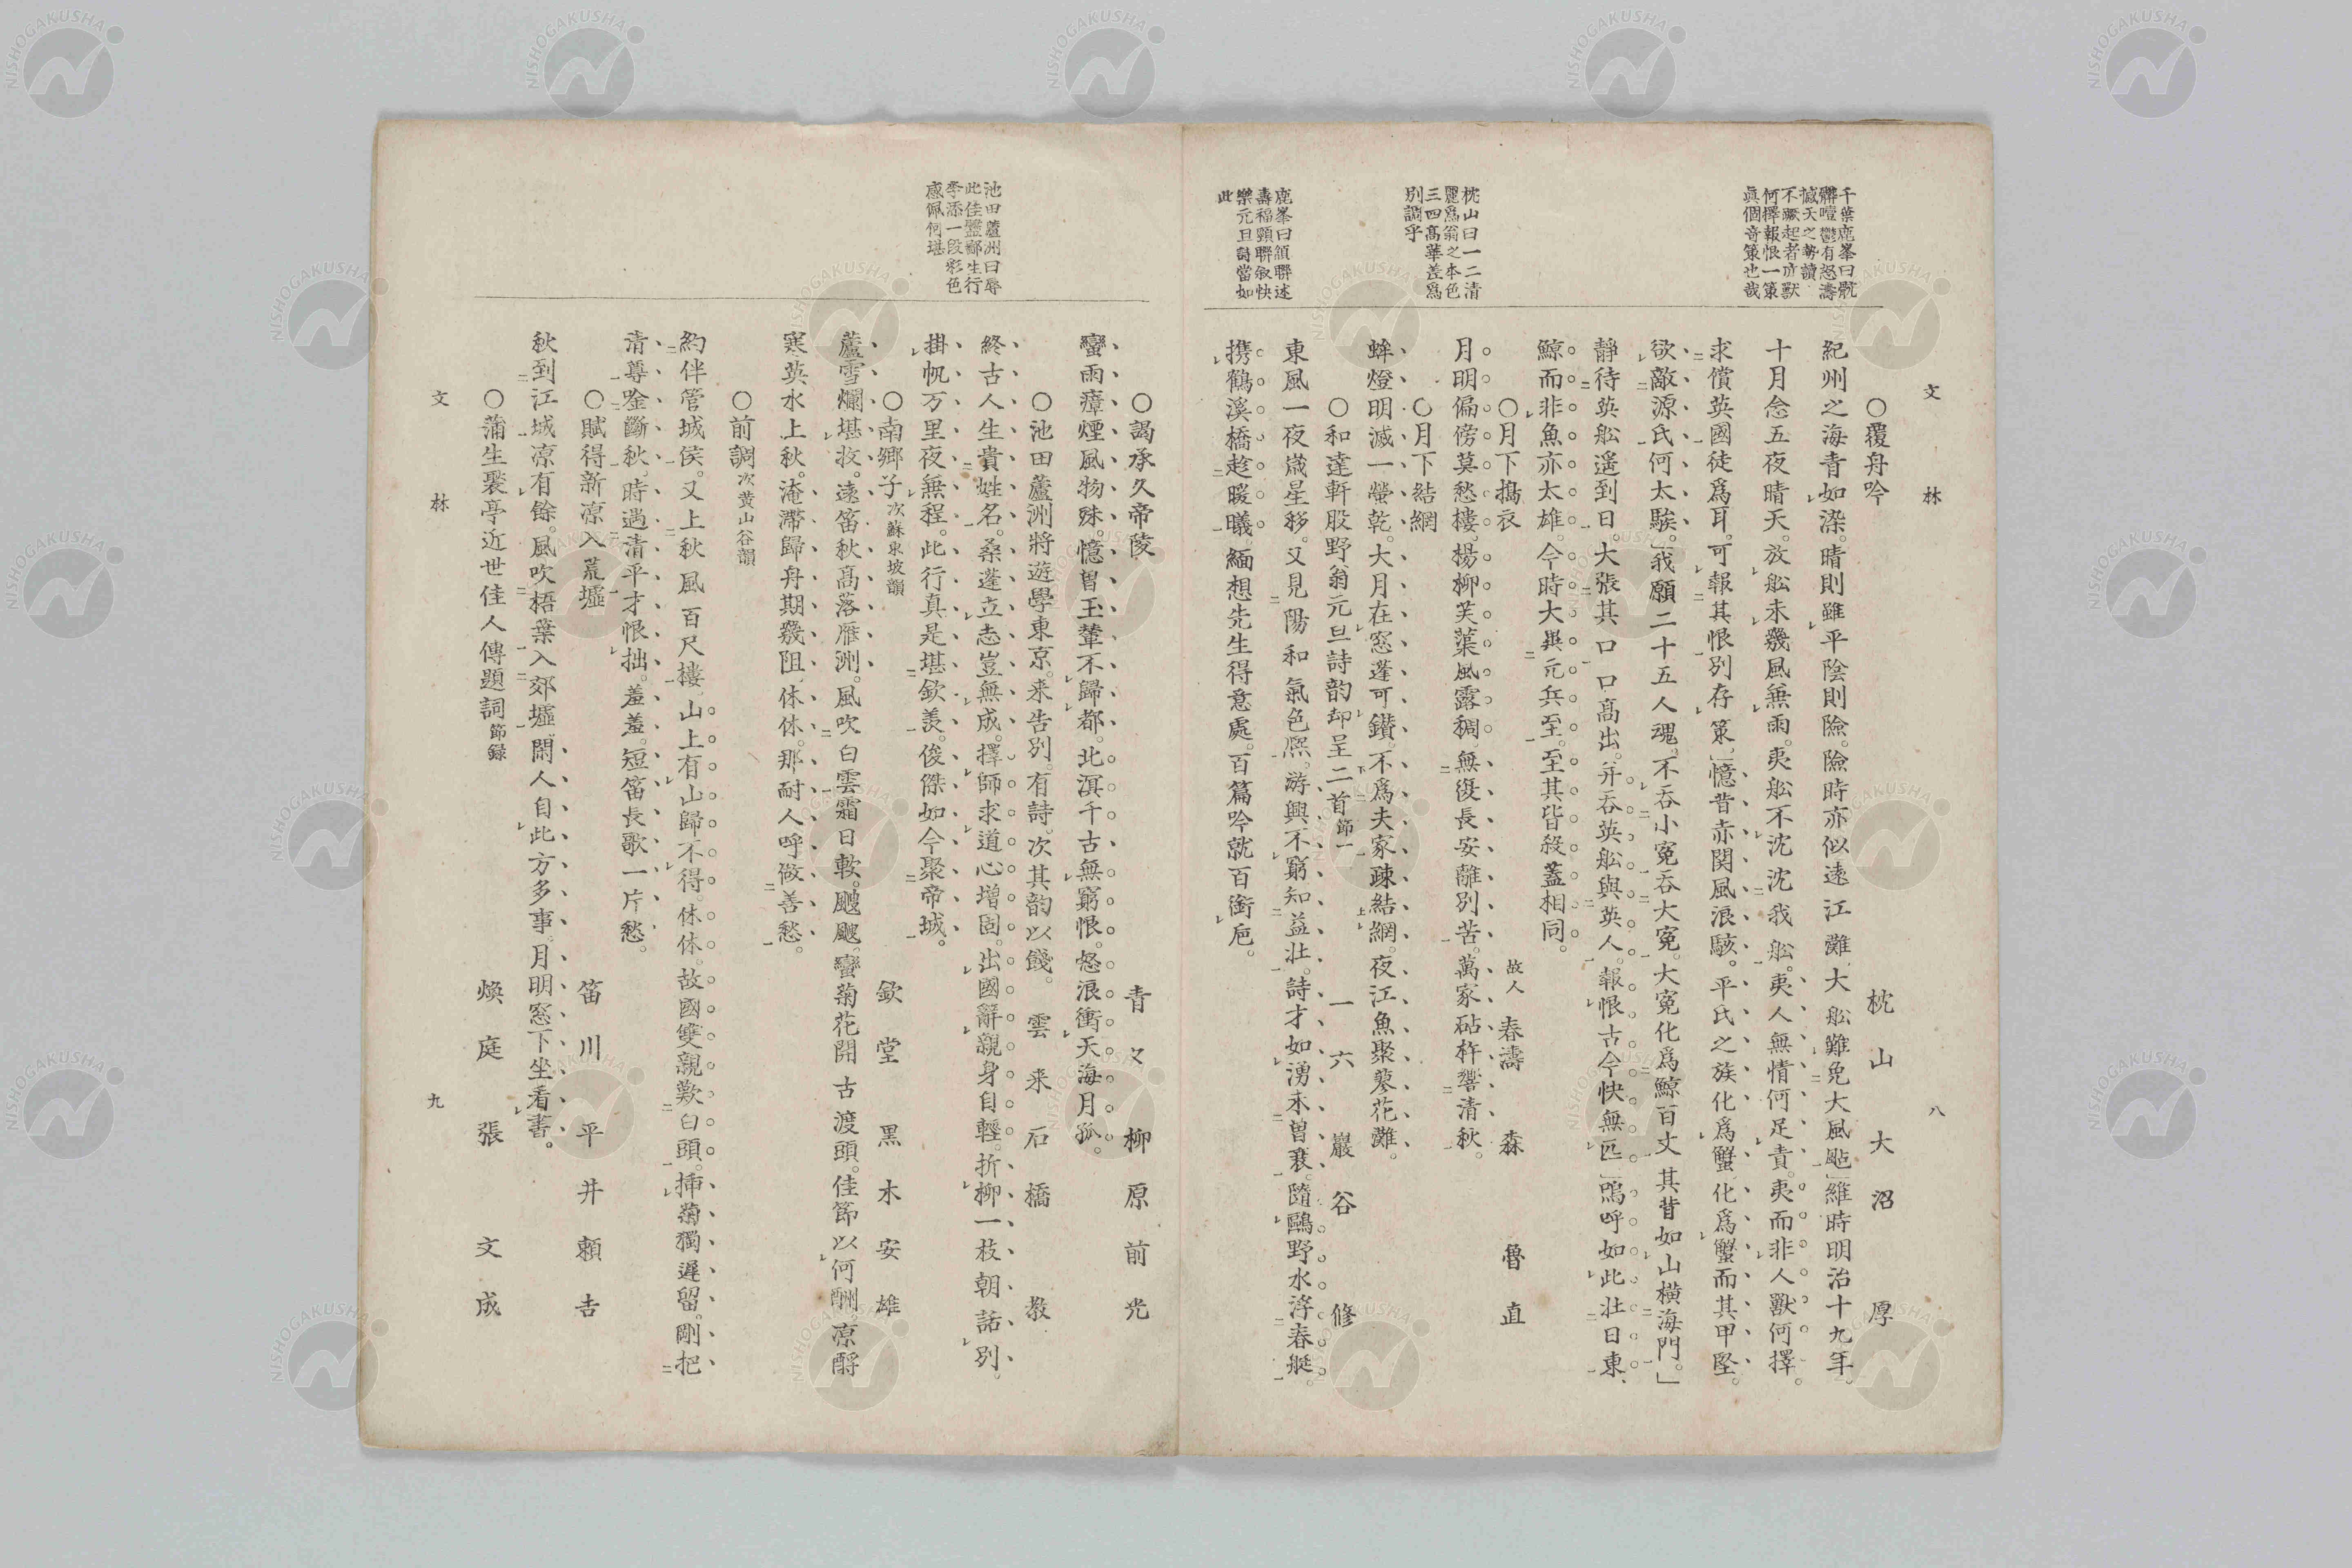 文林
八
千葉鹿峯曰骯
髒噎鬱有怒濤
憾天之勢讀
不蹶起者眞獸
何擇報恨一策
眞個奇策也哉
○覆舟吟
枕山大沼厚
紀州之海青如染。晴則雖平陰則險。險時亦似遠江灘。大舩難免大風颭」維時明治十九年。
十月念五夜晴天。放舩未幾風兼雨。夷舩不沈沈我舩。夷人無情何足責。夷而非人獸何擇。
求償英國徒爲耳。可報其恨別存策」憶昔赤関風浪駭。平氏之族化爲蟹。化爲蟹而其甲堅。
欲敵源氏何太騃。」我願二十五人魂。不呑小寃呑大寃。大寃化爲鯨百丈。其背如山横海門。」
靜待英舩遥到日。大張其口口高出。并呑英舩與英人。報恨古今快無匹」嗚呼如此壮日東。
鯨而非魚亦太雄。今時大異元兵至。至其皆殺蓋相同。
枕山曰一二清
麗爲翁之本色
三四髙華差爲
別調乎
○月下擣衣
故人 春濤 森魯直
月明偏傍莫愁樓。楊柳芙蕖風露稠。無復長安離別苦。萬家砧杵響清秋。
○月下結網
蜯燈明滅一螢乾。大月在窓蓬可鑽。不爲夫家疎結網。夜江魚聚蓼花灘。
○和達軒股野翁元旦詩韵却呈二首節一
一六 巖谷修
東風一夜歳星移。又見陽和氣色熈。游興不窮知益壮。詩才如湧未曽衰。隨鷗野水浮春艇。
鹿峯曰頷聯述
壽福頸聯叙快
樂元旦詩當如
此
携鶴溪橋趁暖曦。緬想先生得意處。百篇吟就百銜巵。
○謁承久帝陵
青々 柳原前光
蠻雨瘴煙風物殊。憶曽玉輦不歸都。北溟千古無窮恨。怒浪衝天海月孤。
○池田蘆洲將遊學東京。来告別。有詩。次其韵以餞。
雲来 石橋教
池田蘆洲曰辱
此佳盬鄙生行
李添一段彩色
感佩何堪
終古人生貴姓名。桑蓬立志豈無成。擇師求道心増固。出國辭親身自輕。折柳一枝朝話別。
掛帆万里夜無程。此行真是堪欽羨。俊傑如今聚帝城。
○南郷子次蘇東坡韻
欽堂 黒木安雄
蘆雪爛堪收。遠笛秋高落雁洲。風吹白雲霜日軟。颼颼。蠻菊花開古渡頭。佳節以何酬。凉酹
寒英水上秋。淹滯歸舟期幾阻。休休。那耐人呼做善愁。
○前調次黄山谷韻
約伴管城侯。又上秋風百尺樓。山上有山歸不得。休休。故國雙親歎白頭。挿菊獨遅留。剛把
清尊唫斷秋。時遇清平才恨拙。羞羞。短笛長歌一片愁。
○賦得新凉入荒墟
笛川 平井頼吉
秋到江城凉有餘。風吹梧葉入郊墟。閑人自此方多事。月明窓下坐看書。
○蒲生褧亭近世佳人傳題詞節録
煥庭 張文成
文林
九